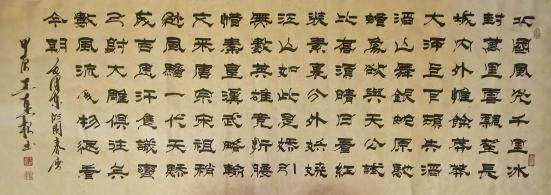 北國風光千里冰
封萬里雪飄望長
城內外惟餘莽莽
大河上下頓失滔
滔山舞銀蛇原馳
蠟象欲與天公試
比高須晴日看紅
裝素裹分外妖嬈
江山如此多嬌引
無數英雄競折腰
惜秦皇漢武略輸
文采唐宗宋祖稍
遜風騷一代天驕
成吉思汗隻識彎
弓射大雕俱往矣
數風流人物還看
今朝 毛澤東沁園春雪
甲辰 書